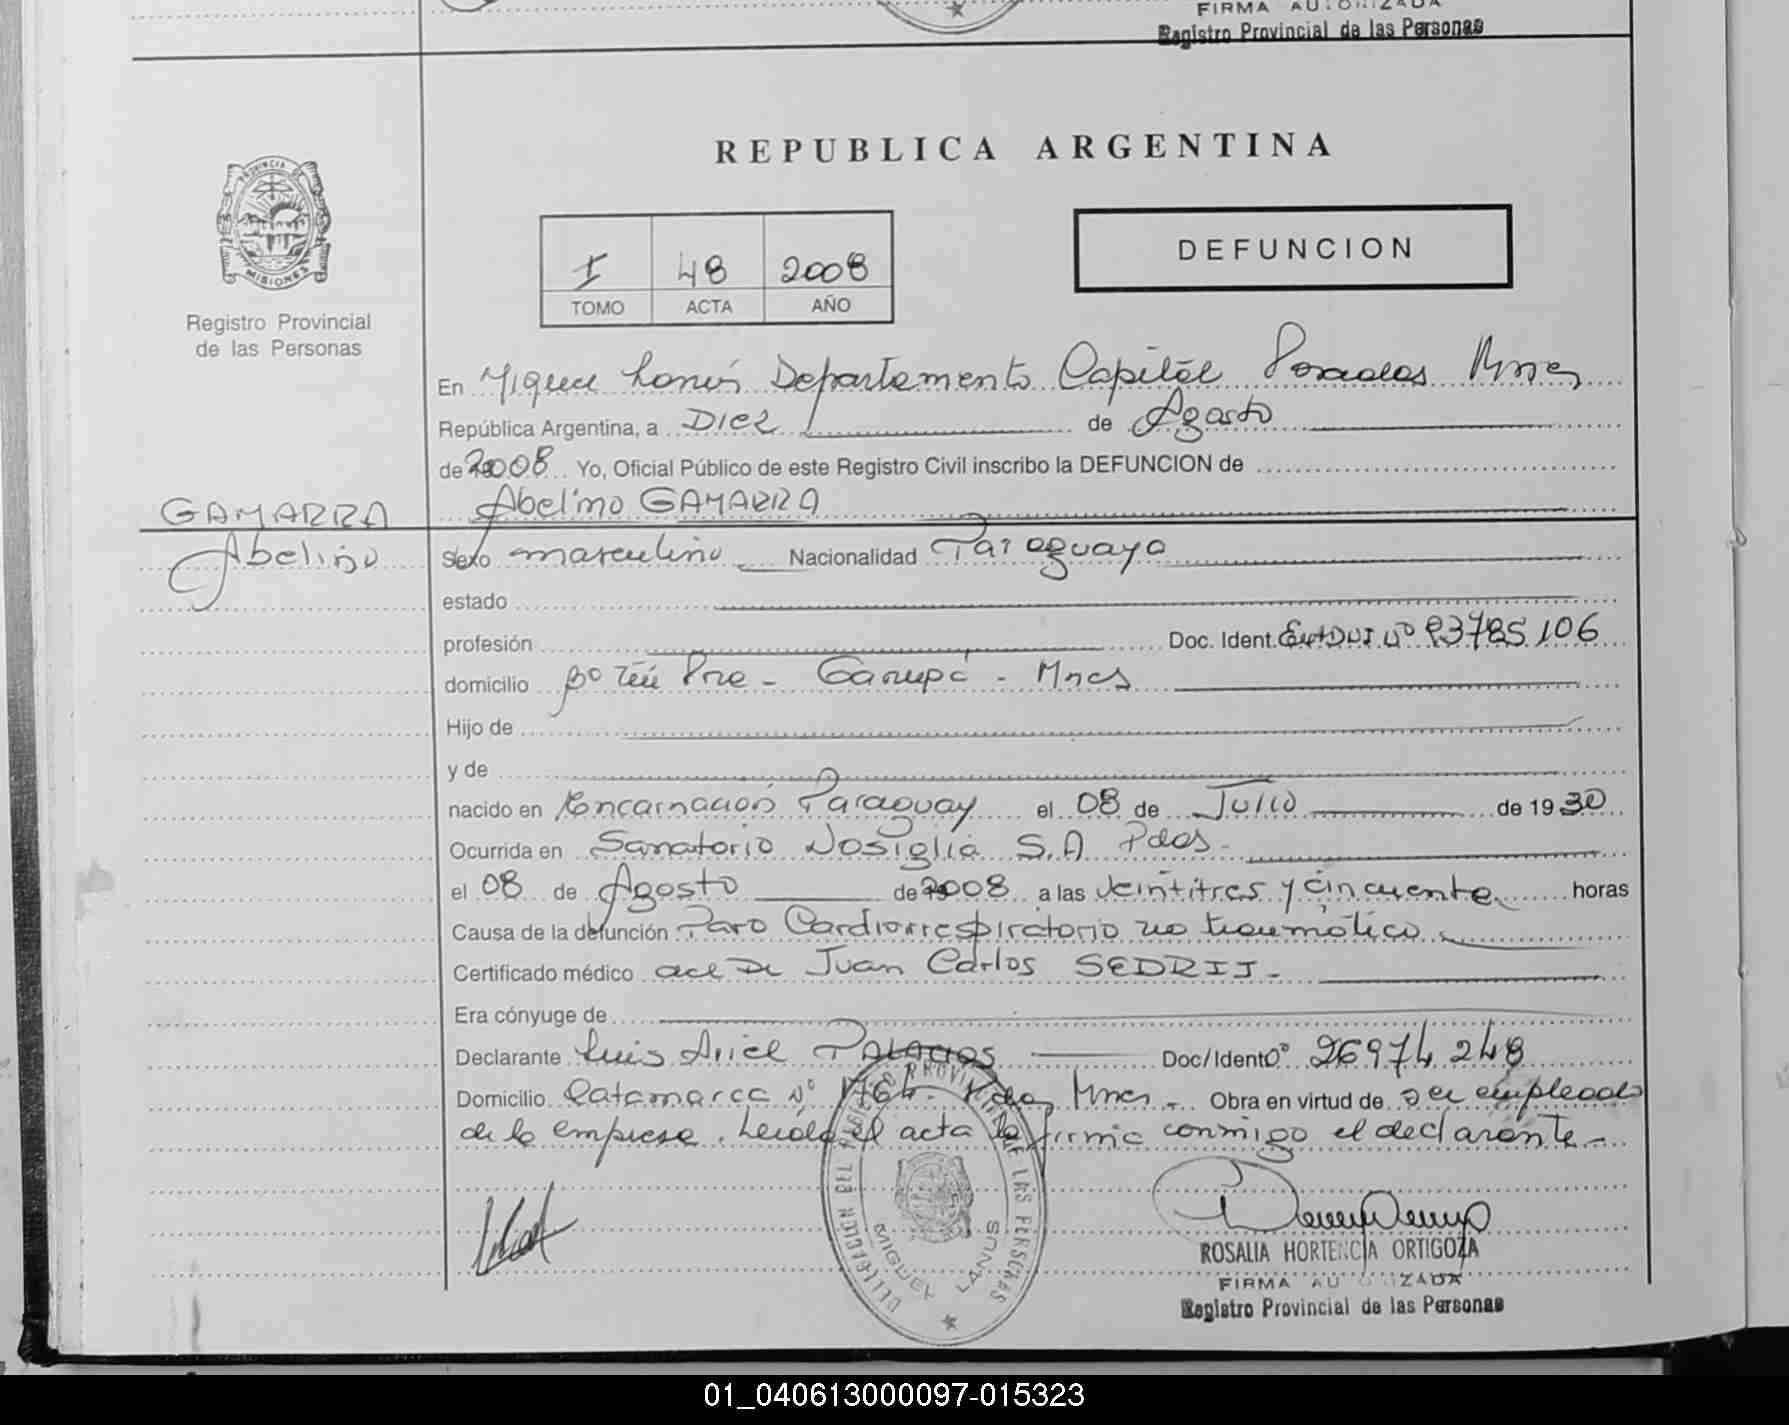 FIRMA AUTORIZADA
Registro Provincial de las Personas
REPUBLICA ARGENTINA
PROVINCIA DE
MISIONES
Registro Provincial
de las Personas
I 48 2008
TOMO ACTA AÑO
DEFUNCION
En Miguel Lanús Departamento Capital Posadas Mnes
República Argentina, a Diez de Agosto
de 2008 Yo, Oficial Público de este Registro Civil inscribo la DEFUNCION de
GAMARRA Abelino GAMARRA
Abelino Sexo masculino Nacionalidad Paraguaya
estado
profesión Doc. Ident. DNI Nº 93785106
domicilio Bº Pne - Garupá - Mnes
Hijo de
y de
nacido en Encarnación Paraguay el 08 de Julio de 1930
Ocurrida en Sanatorio Nosiglia S.A Pdas.
el 08 de Agosto de 2008 a las veintitres y cincuenta horas
Causa de la defunción Paro Cardiorrespiratorio no traumático
Certificado médico del Dr Juan Carlos SEDRIJ.
Era cónyuge de
Declarante Luis Ariel PALACIOS Doc/Ident Nº 26974248
Domicilio Catamarca Nº Pdas Mnes - Obra en virtud de ser empleado
de la empresa. Leída el acta la firma conmigo el declarante.-
DELEGACION DEL REGISTRO PROVINCIAL DE LAS PERSONAS
MIGUEL LANUS
ROSALIA HORTENCIA ORTIGOZA
FIRMA AUTORIZADA
Registro Provincial de las Personas
01_040613000097-015323